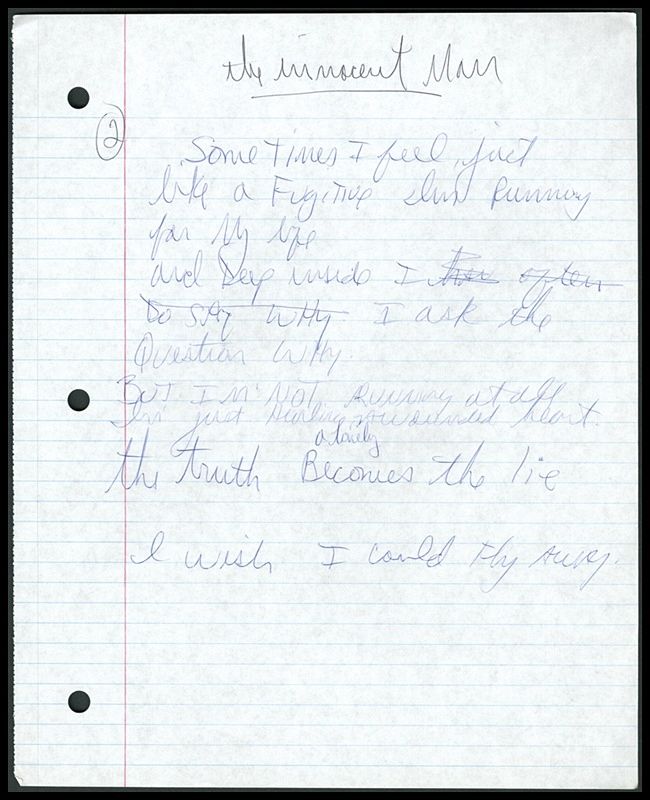 the innocent Man
2
Sometimes I feel, just
like a Fugitive Im Running
for My life
and Deep inside I often
Do say Why I ask the
Question Why.
But Im Not Running at all
Im just Nursing a wounded heart.
a lonely
the truth Becomes the lie
I wish I could Fly Away.